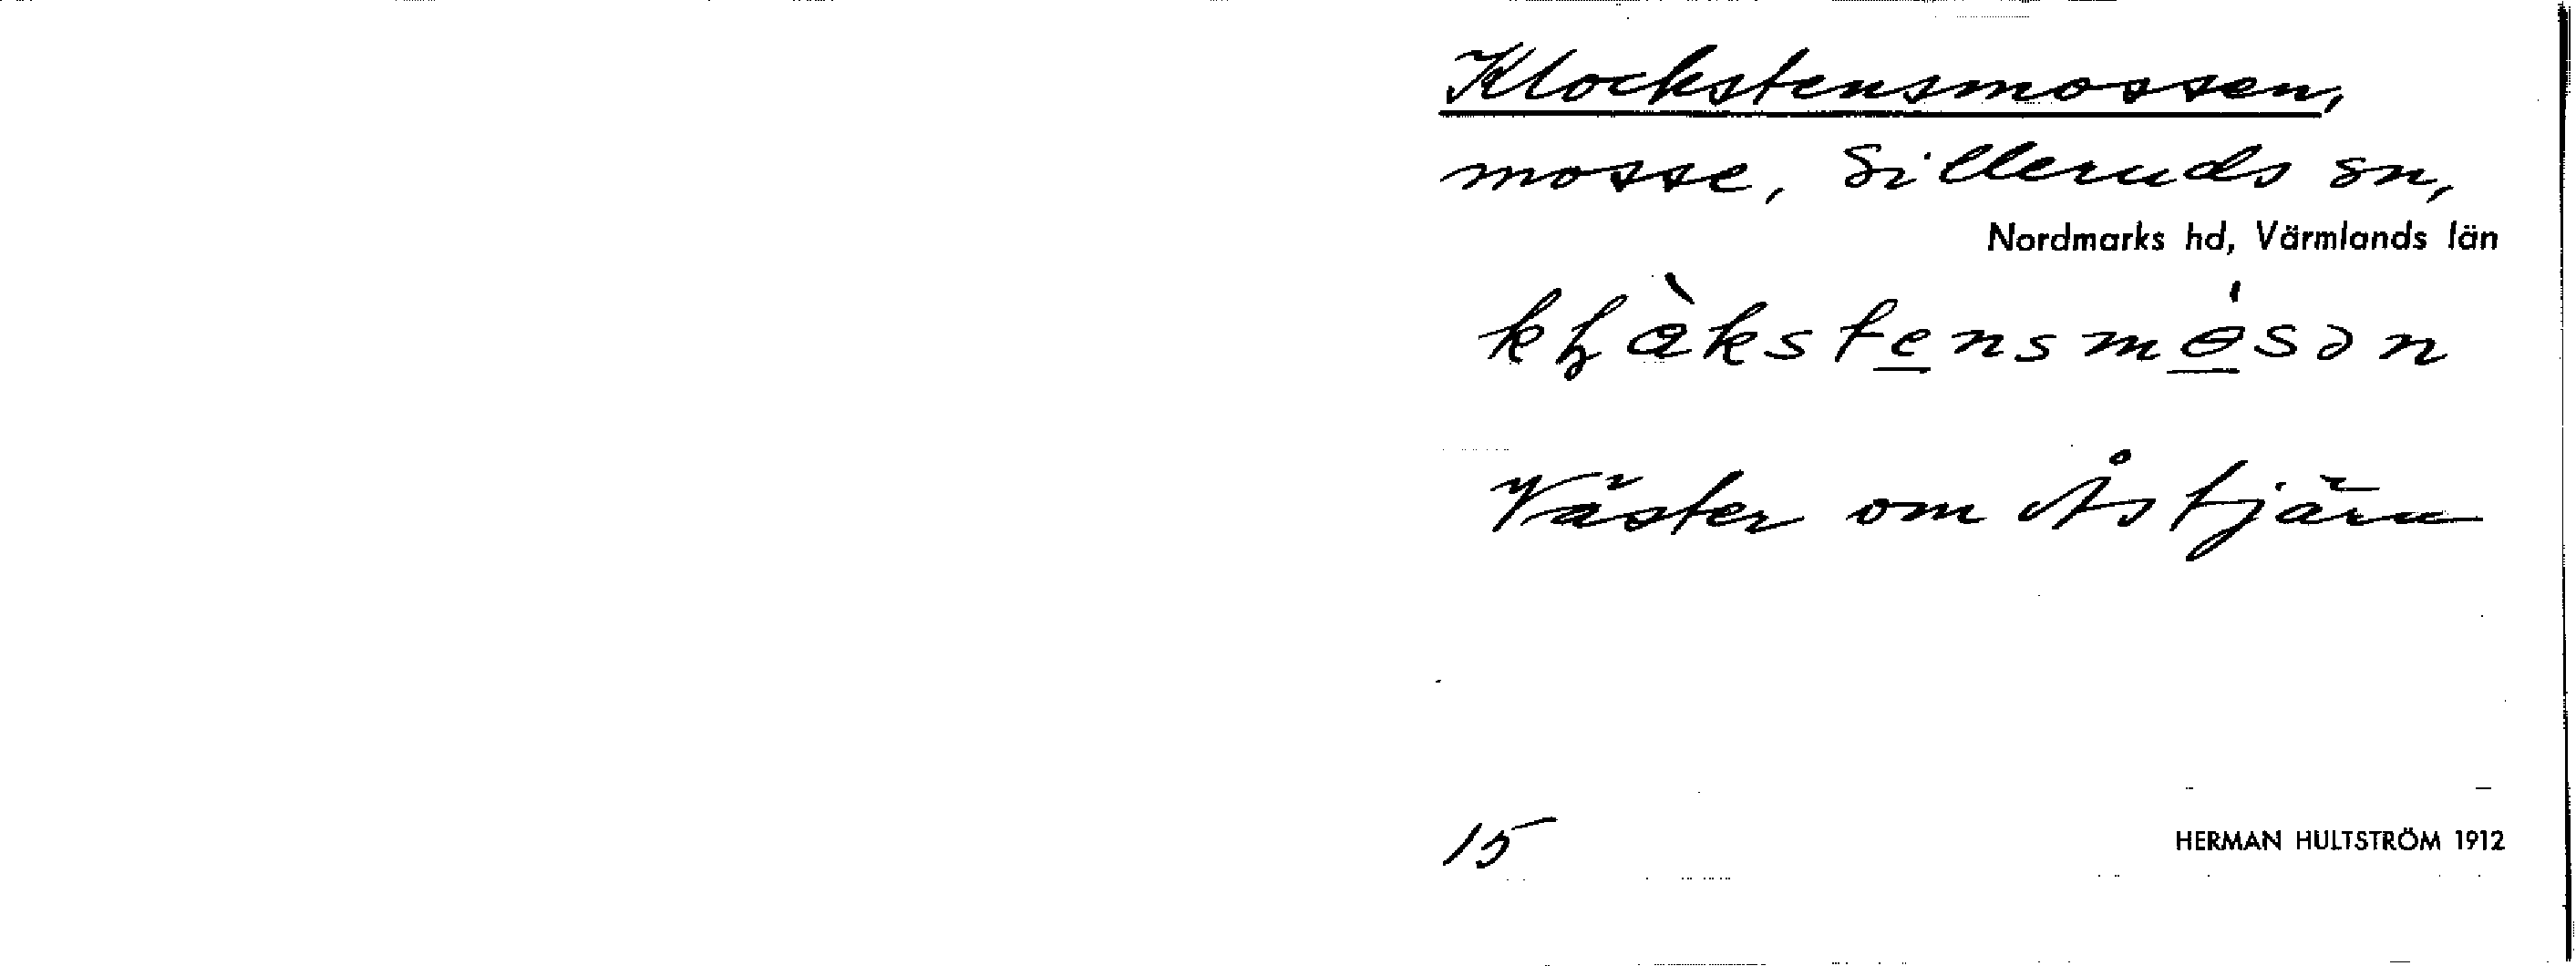 Klockstensmossen,
mosse, Silleruds sn,
Nordmarks hd, Värmlands län
Väster om Åstjärn
15
HERMAN HULTSTRÖM 1912